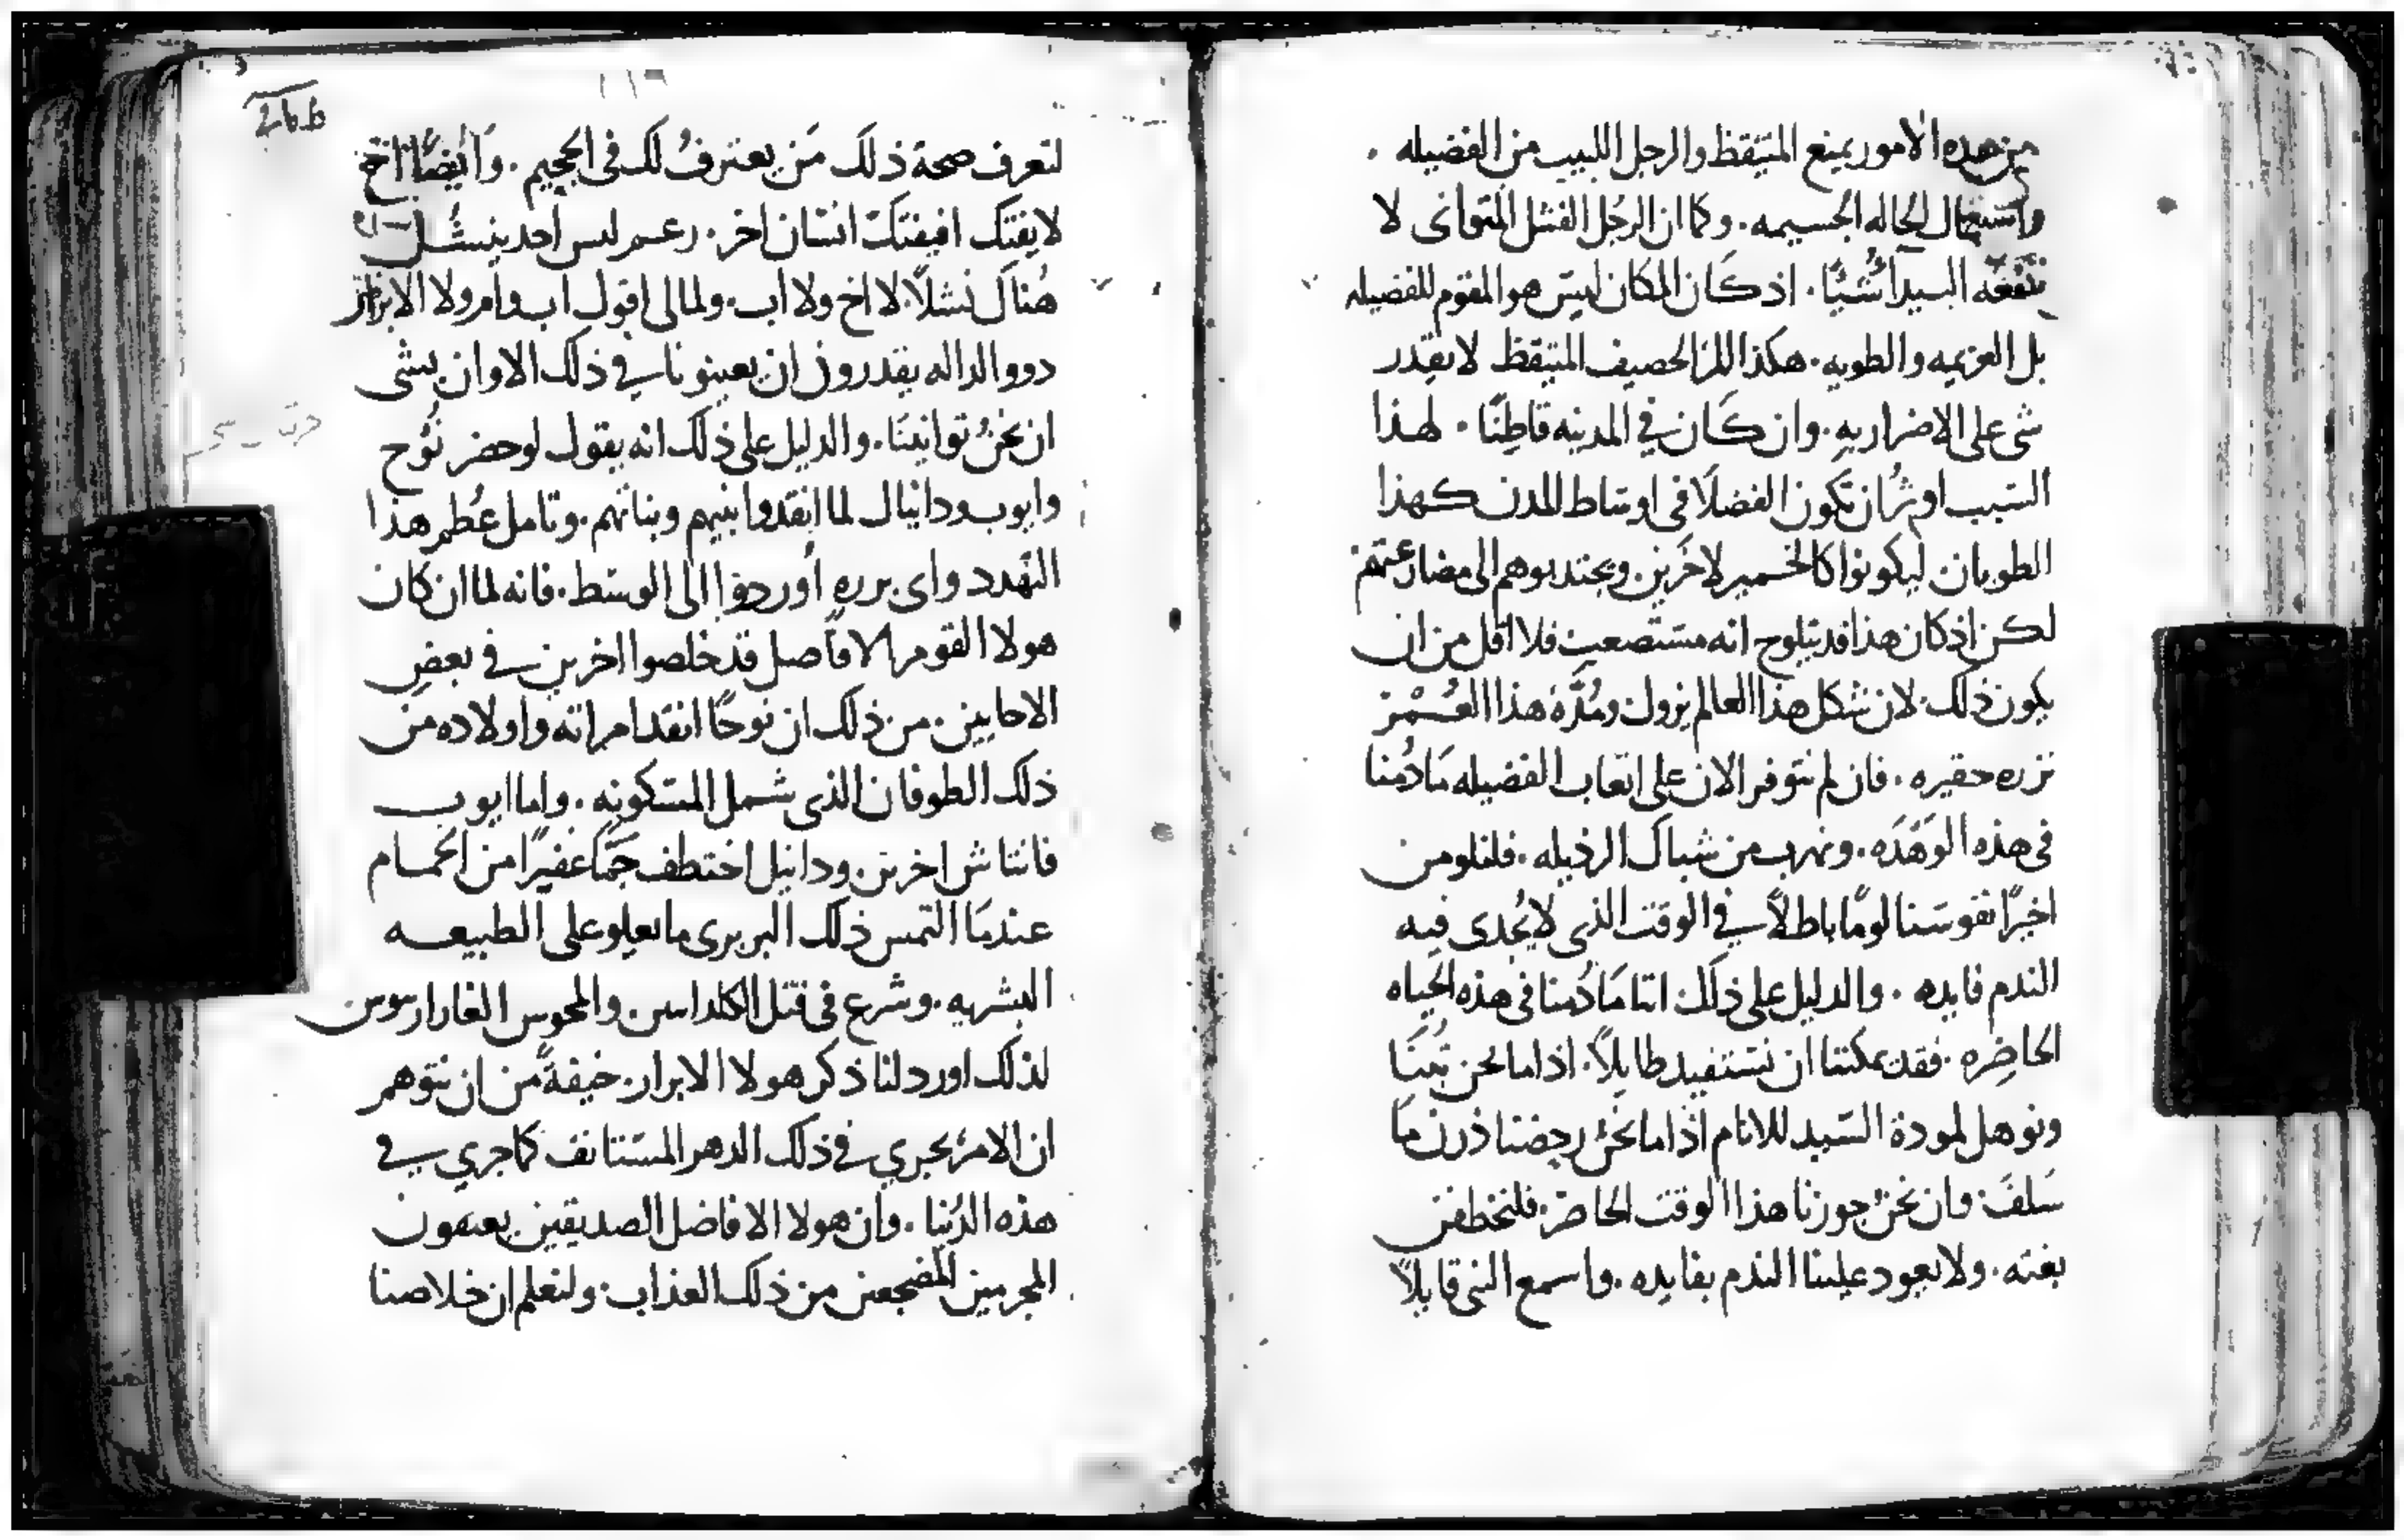 من هذه الامور يمنع المتيقظ والرجل اللبيب من الفضيله .
واستعمال الحاله الجسيمه . وكما ان الرجل الفشل المتوانى لا
تنفعه البيدا شيًا . اذ كان المكان ليس هو المقوم للفضيله
بل العزيمه والطويه . هكذا المرا الحصيف المتيقظ لا يقدر
شى على الاضرار به . وان كان في المدينه قاطنًا . لهذا
السبب اوثر ان تكون الفضلا فى اوساط المدن كهذا
الطوبان . ليكونوا كالخمير لاخرين . ويجتدبوهم الى مضارعتهم
لكن اذ كان هذا قد يتلوح انه مستصعب فلا اقل من ان
يكون ذلك . لان شكل هذا العالم يزول ومُدَّة هذا العُمْر
نزره حقيره . فان لم نتوفر الان على اتعاب الفضيله مَا دُمنا
فى هذه الوَهْدَه . ونهرب من شباك الرذيله . فلنلومن
اخيرًا نفوسَنا لومًا باطلاً في الوقت الذى لا يُجدى فيه
الندم فايده . والدليل على ذلك اننا مَا دُمنا فى هذه الحياه
الحاضِره . فقد يمكننا ان نستفيد طايلاً . اذا ما نحن تُبنَا
ونوهل لمودة السَيد للانام اذا ما نحنُ رحضنا ذرن مَا
سَلفَ . وان نحنُ جوزنا هذا الوقت الحاضر . فلنخطفن
بغته . ولا يعود علينا الندم بفايده . واسمع النبى قايلاً
266
لنعرف صحة ذلك مَن يعترفُ لك فى الجحيم . وَايْضًا اخ
لا يفتك افيفتك انسَان اخر . زعم ليس احد ينشُل
هُناك نشلاً . لا اخ ولا اب . ولما لى اقول اب وام ولا الابرار
دوو الداله يقدرون ان يعينونا في ذلك الاوان بشى
ان نحنُ توانينَا . والدليل على ذلك انه يقول لو حضر نُوح
وايوب ودانيال لما انقدوا بنيهم وبناتهم . وتامل عُظم هذا
التهدد واى برره اوردوا الى الوسَط . فانه لما ان كان
هولا القوم الافاضل قد خلصوا اخرين في بعض
الاحايين . من ذلك ان نوحًا انقد امراته واولاده من
ذلك الطوفان الذى شمل المسكونه . واما ايوب
فانتاش اخرين . ودانيل اختطف جَمًا غفيرًا من الحمام
عندمَا التمس ذلك البربرى ما يعلو على الطبيعه
البشريه . وشرع فى قتل الكلدانين . والمجوس
لذلك اورد لنا ذكر هولا الابرار . خيفةً من ان نتوهم
ان الامرُ يجري في ذلك الدهر المستانف كما جري في
هذه الدُنيا . وان هولا الافاضل الصديقين يعتقون
المجرمين المضجعين من ذلك العذاب . ولنعلم ان خلاصنا